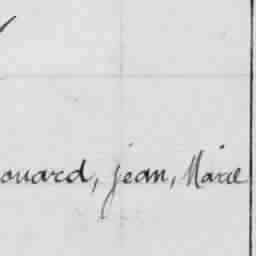 ouard, jean, Marie